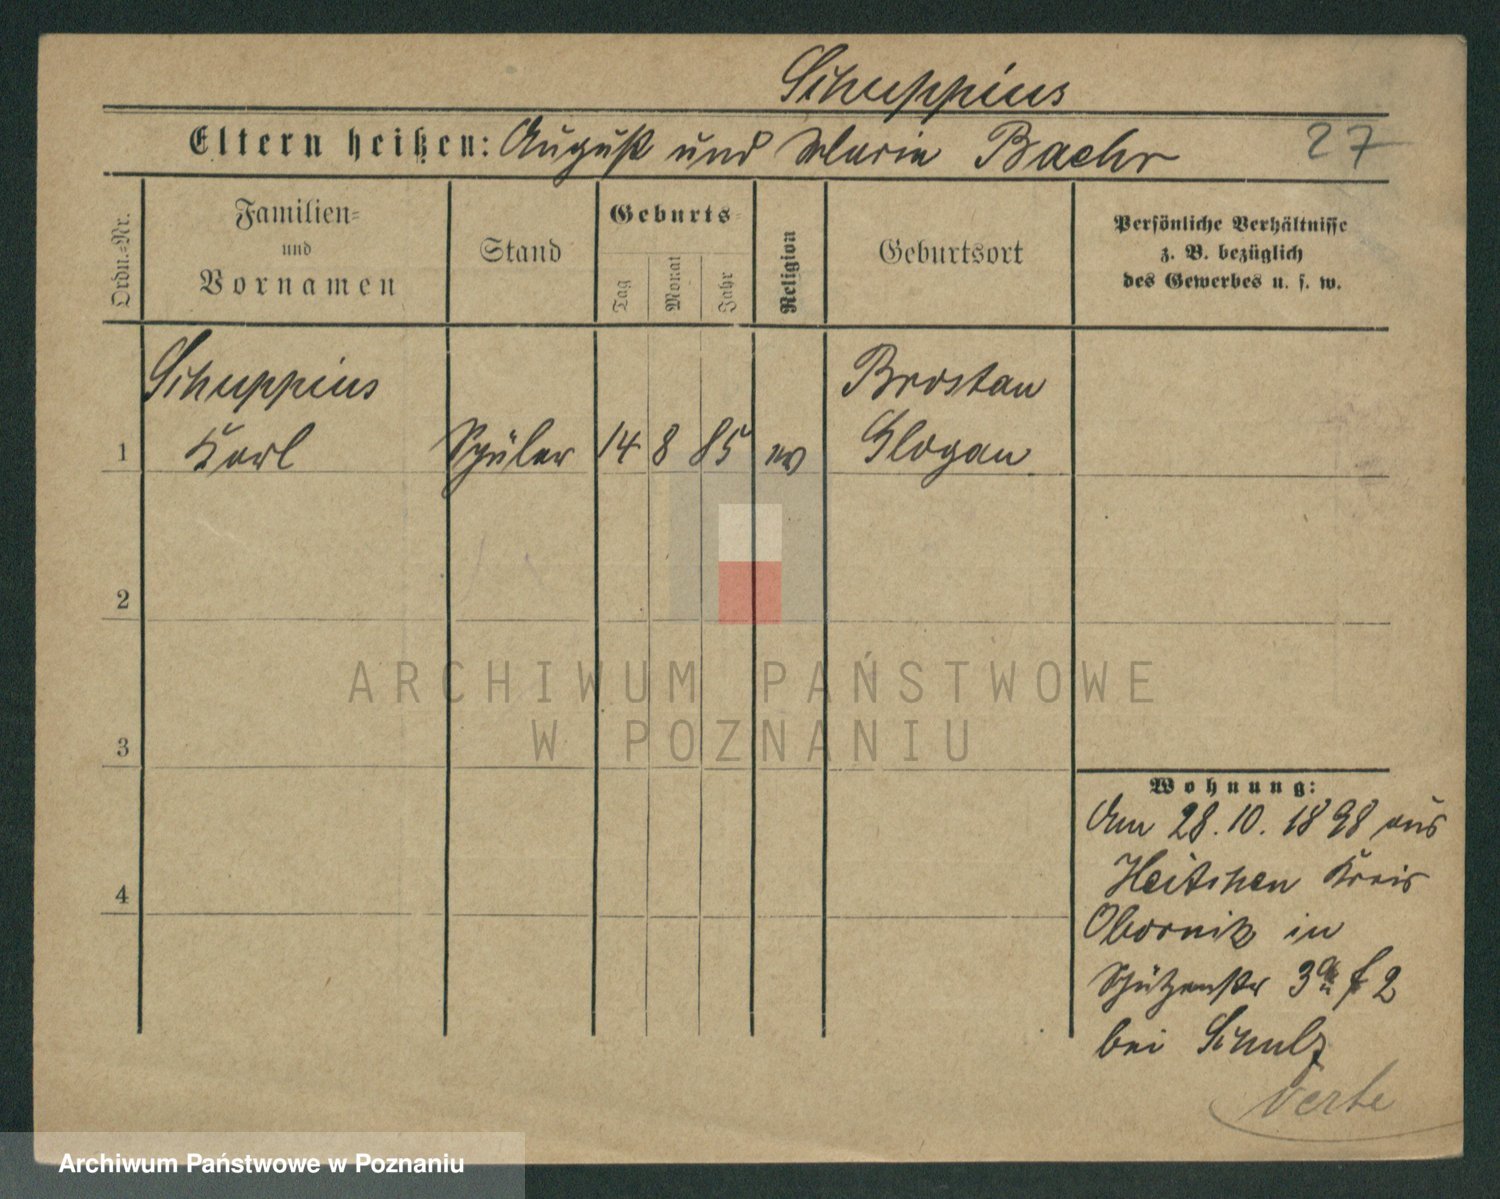 Schuppius
Eltern heißen: August und Marie Baehr 27
Ordn.=Nr.
Familien=
und
Vornamen
Stand
Geburts=
Tag
Monat
Jahr
Religion
Geburtsort
Persönliche Verhältnisse
z. B. bezüglich
des Gewerbes u. s. w.
Schuppius Brostau
1 Karl Schüler 14 8 85 ev Glogau
2
3
4
ARCHIWUM PAŃSTWOWE
W POZNANIU
Wohnung:
Am 28. 10. 1898 aus
Heitchen Kreis
Obornik in
Schützenstr 3 2
bei Schulz
verte
Archiwum Państwowe w Poznaniu